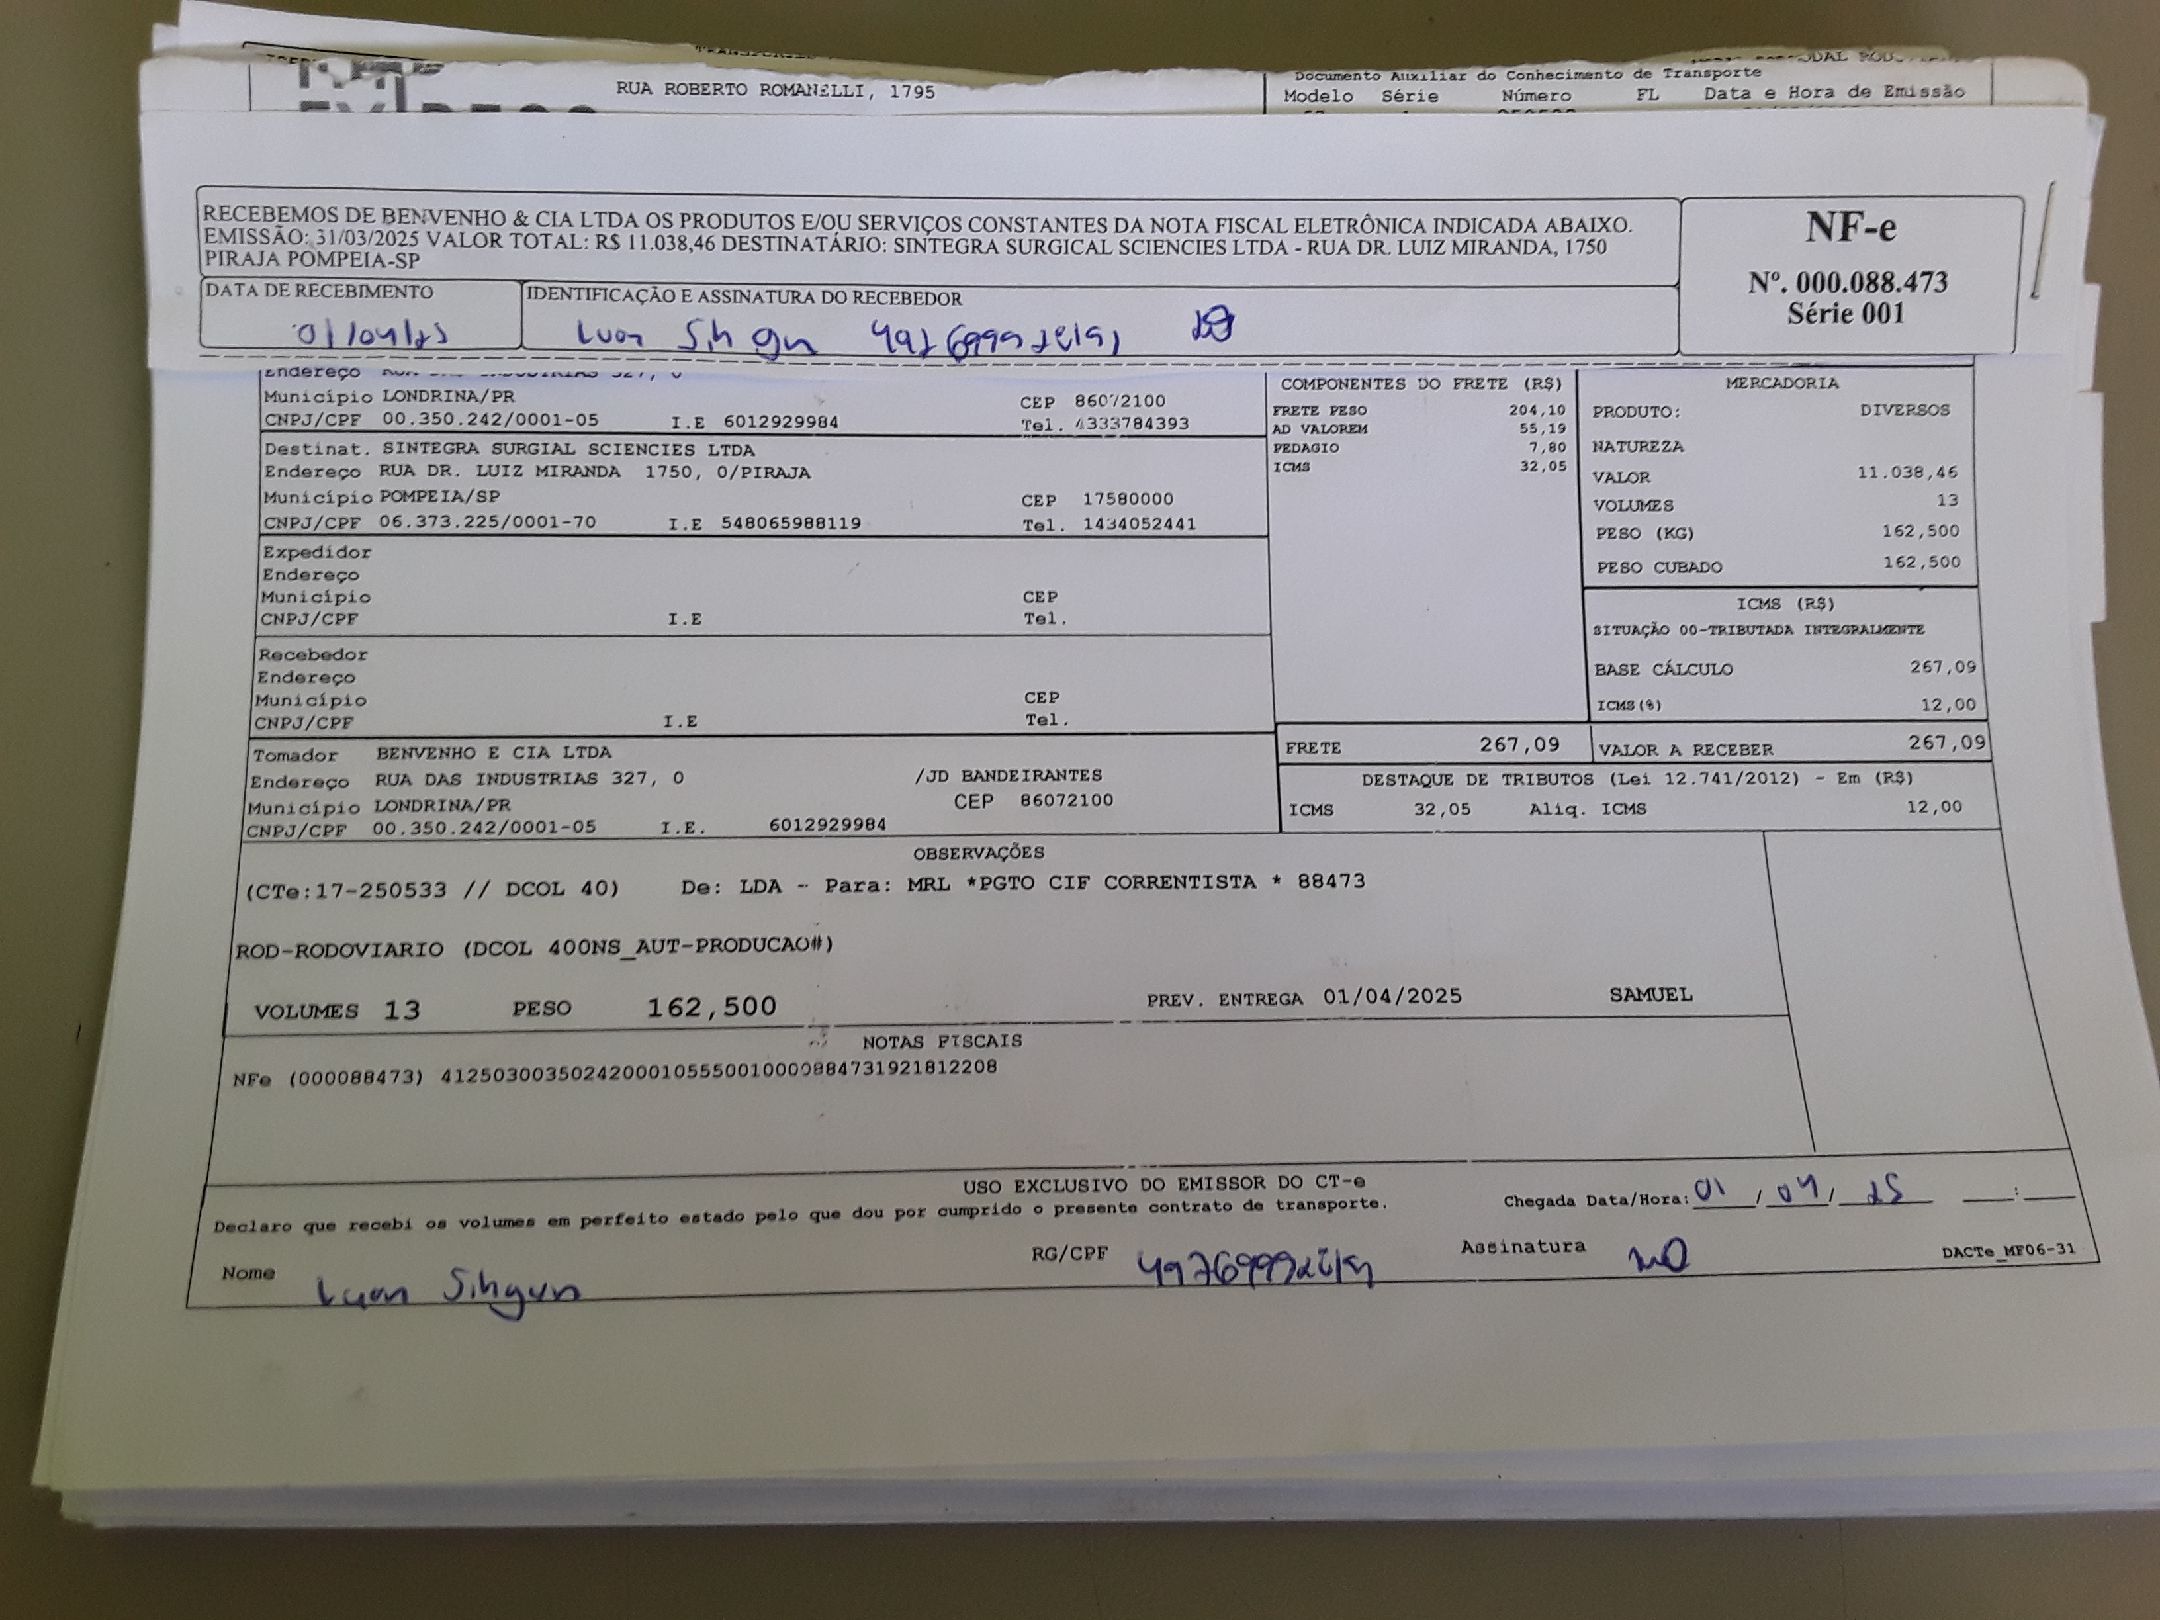 RUA ROBERTO ROMANELLI, 1795
Documento Auxiliar do Conhecimento de Transporte
Modelo Série Número FL Data e Hora de Emissão
RECEBEMOS DE BENVENHO & CIA LTDA OS PRODUTOS E/OU SERVIÇOS CONSTANTES DA NOTA FISCAL ELETRÔNICA INDICADA ABAIXO.
EMISSÃO: 31/03/2025 VALOR TOTAL: R$ 11.038,46 DESTINATÁRIO: SINTEGRA SURGICAL SCIENCIES LTDA - RUA DR. LUIZ MIRANDA, 1750
PIRAJA POMPEIA-SP
NF-e
Nº. 000.088.473
Série 001
DATA DE RECEBIMENTO
01/04/25
IDENTIFICAÇÃO E ASSINATURA DO RECEBEDOR
Luan
Endereço
Município LONDRINA/PR CEP 86072100
CNPJ/CPF 00.350.242/0001-05 I.E 6012929984 Tel. 4333784393
Destinat. SINTEGRA SURGIAL SCIENCIES LTDA
Endereço RUA DR. LUIZ MIRANDA 1750, 0/PIRAJA
Município POMPEIA/SP CEP 17580000
CNPJ/CPF 06.373.225/0001-70 I.E 548065988119 Tel. 1434052441
Expedidor
Endereço
Município CEP
CNPJ/CPF I.E Tel.
Recebedor
Endereço
Município CEP
CNPJ/CPF I.E Tel.
Tomador BENVENHO E CIA LTDA
Endereço RUA DAS INDUSTRIAS 327, 0 /JD BANDEIRANTES
Município LONDRINA/PR CEP 86072100
CNPJ/CPF 00.350.242/0001-05 I.E. 6012929984
COMPONENTES DO FRETE (R$)
FRETE PESO 204,10
AD VALOREM 55,19
PEDAGIO 7,80
ICMS 32,05
MERCADORIA
PRODUTO: DIVERSOS
NATUREZA
VALOR 11.038,46
VOLUMES 13
PESO (KG) 162,500
PESO CUBADO 162,500
ICMS (R$)
SITUAÇÃO 00-TRIBUTADA INTEGRALMENTE
BASE CÁLCULO 267,09
ICMS(%) 12,00
FRETE 267,09 VALOR A RECEBER 267,09
DESTAQUE DE TRIBUTOS (Lei 12.741/2012) - Em (R$)
ICMS 32,05 Aliq. ICMS 12,00
OBSERVAÇÕES
(CTe:17-250533 // DCOL 40) De: LDA - Para: MRL *PGTO CIF CORRENTISTA * 88473
ROD-RODOVIARIO (DCOL 400NS_AUT-PRODUCAO#)
VOLUMES 13 PESO 162,500 PREV. ENTREGA 01/04/2025 SAMUEL
NOTAS FISCAIS
NFe (000088473) 41250300350242000105550010000884731921812208
USO EXCLUSIVO DO EMISSOR DO CT-e
Declaro que recebi os volumes em perfeito estado pelo que dou por cumprido o presente contrato de transporte.
Chegada Data/Hora: 01/04/25 __:__
Nome Luan RG/CPF Assinatura DACTe_MF06-31